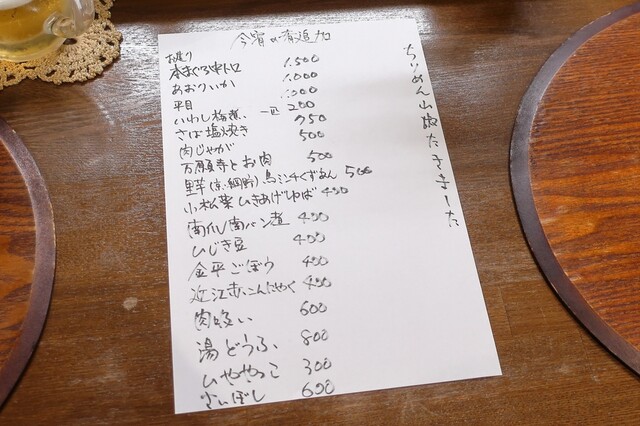 お造り
本まぐろ中トロ 1,500
あおりいか 1,000
平目 1,000
いわし梅煮 一匹 200
さば塩焼き 750
肉じゃが 500
万願寺とお肉 500
里芋(京・網野)鳥ミンチくずあん 500
小松菜ひきあげゆば 400
南瓜南バン煮 400
ひじき豆 400
金平ごぼう 400
近江赤こんにゃく 400
肉吸い 600
湯どうふ 800
ひややっこ 300
にぼし 600
ちりめん山椒たきました